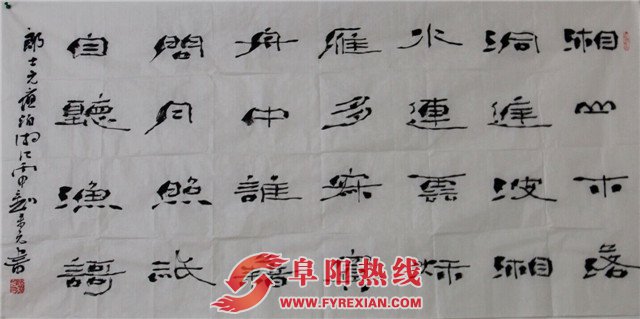 湘山木落
洞庭波湘
水連雲秋
雁多寂寞
舟中誰借
問月照祇
自聽漁謌
郎士元夜泊湘江
阜阳热线
WWW.FYREXIAN.COM